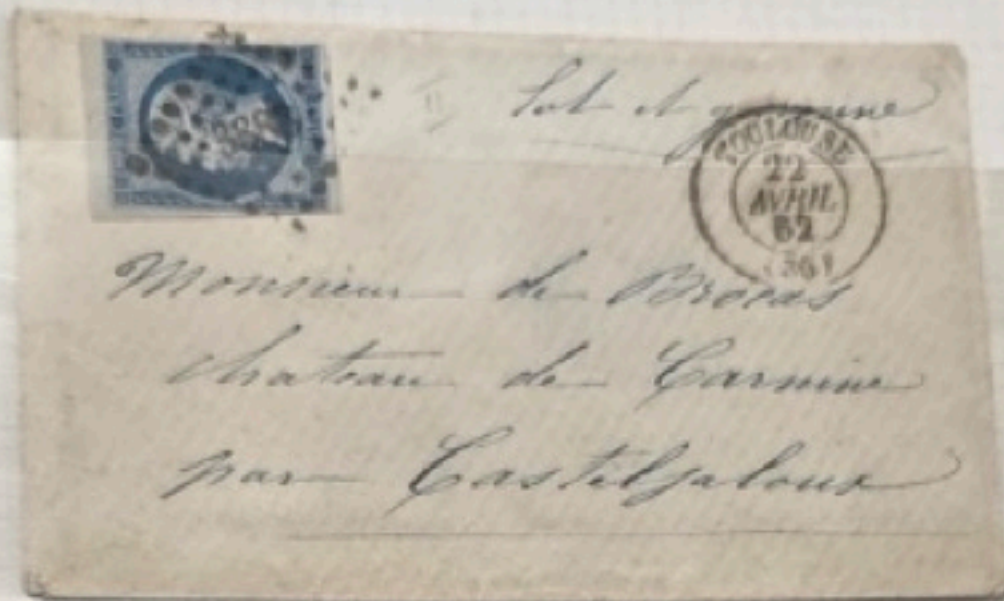 Lot et garonne
TOULOUSE
22
AVRIL
62
Monsieur de Brocas
chateau de
par Casteljaloux